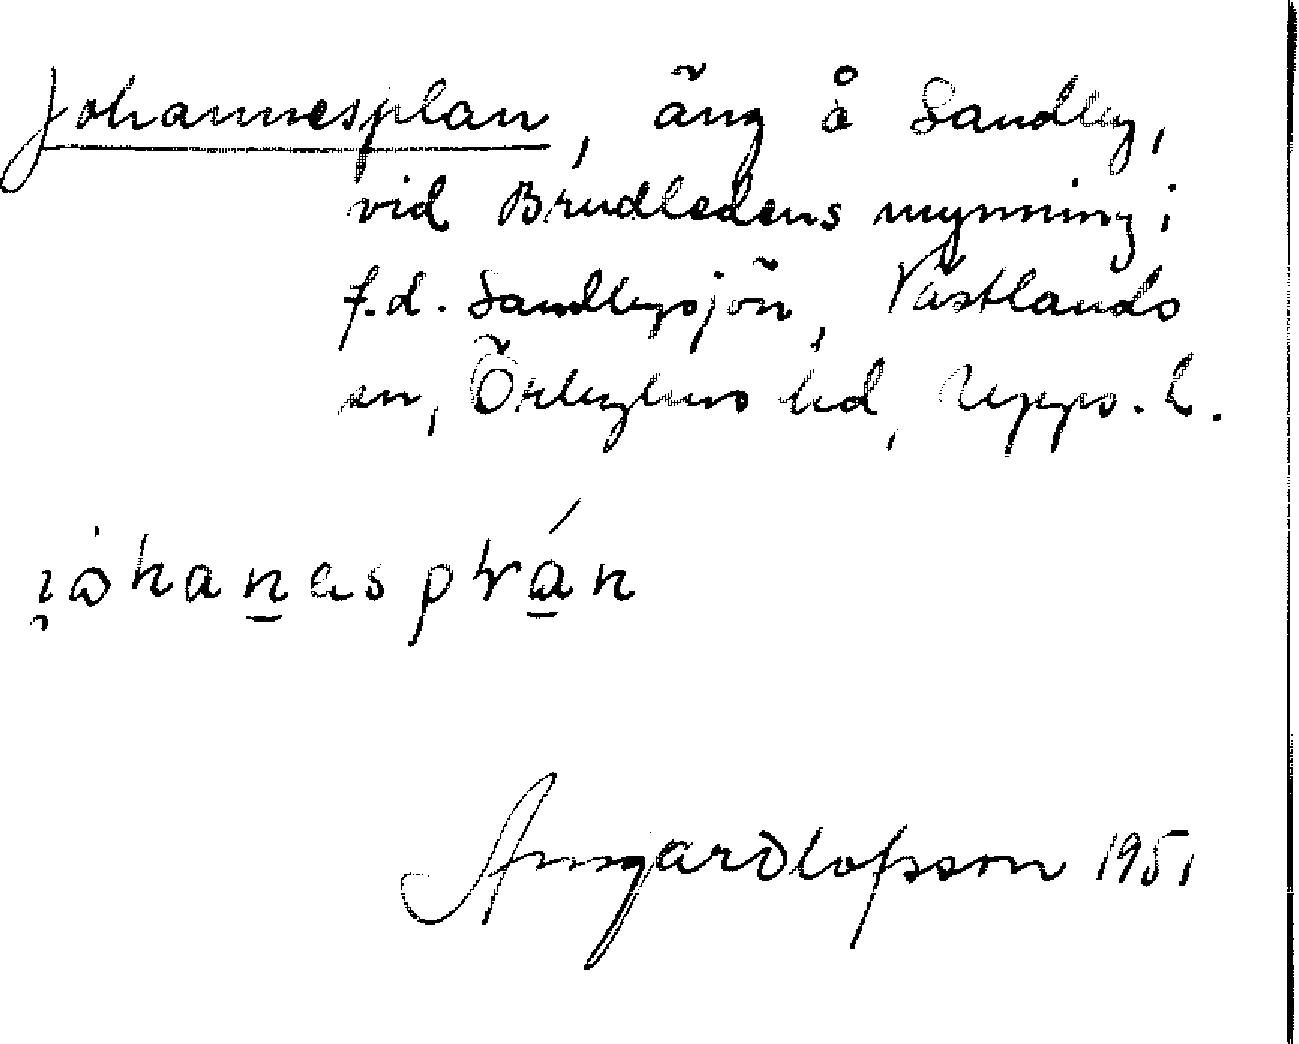 Johannesplan, äng å Sandby,
vid Brudledens mynning i
f.d. Sandbysjön, Västlands
sn, Örbyhus hd, Upps. L.
johanesplán
Ansgar Olofsson 1951